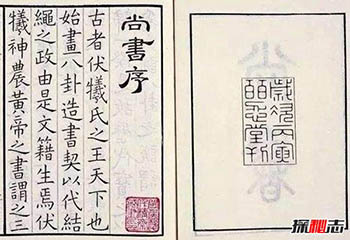 歲次丙寅
皕忍堂刊
尚書序
古者伏犧氏之王天下也
始畫八卦造書契以代結
繩之政由是文籍生焉伏
犧神農黃帝之書謂之三
探秘志